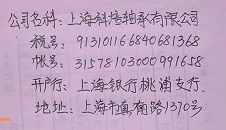 公司名称:上海科培轴承有限公司
税号:913101166840681368
帐号:31578103000991658
开户行:上海银行桃浦支行
地址:上海市真南路1370号